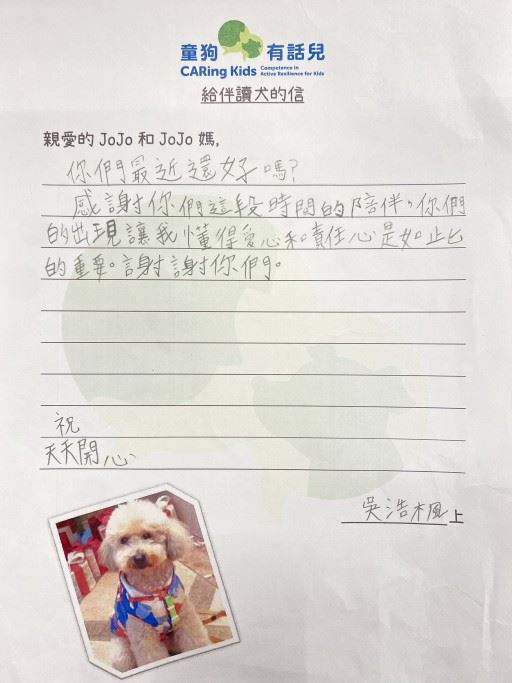 童狗有話兒
CARing Kids Competence in Active Resilience for Kids
給伴讀犬的信
親愛的 JoJo 和 JoJo 媽,
你們最近還好嗎?
感謝你們這段時間的陪伴,你們
的出現讓我懂得愛心和責任心是如此
的重要。謝謝你們。
祝
天天開心
吳浩楓上